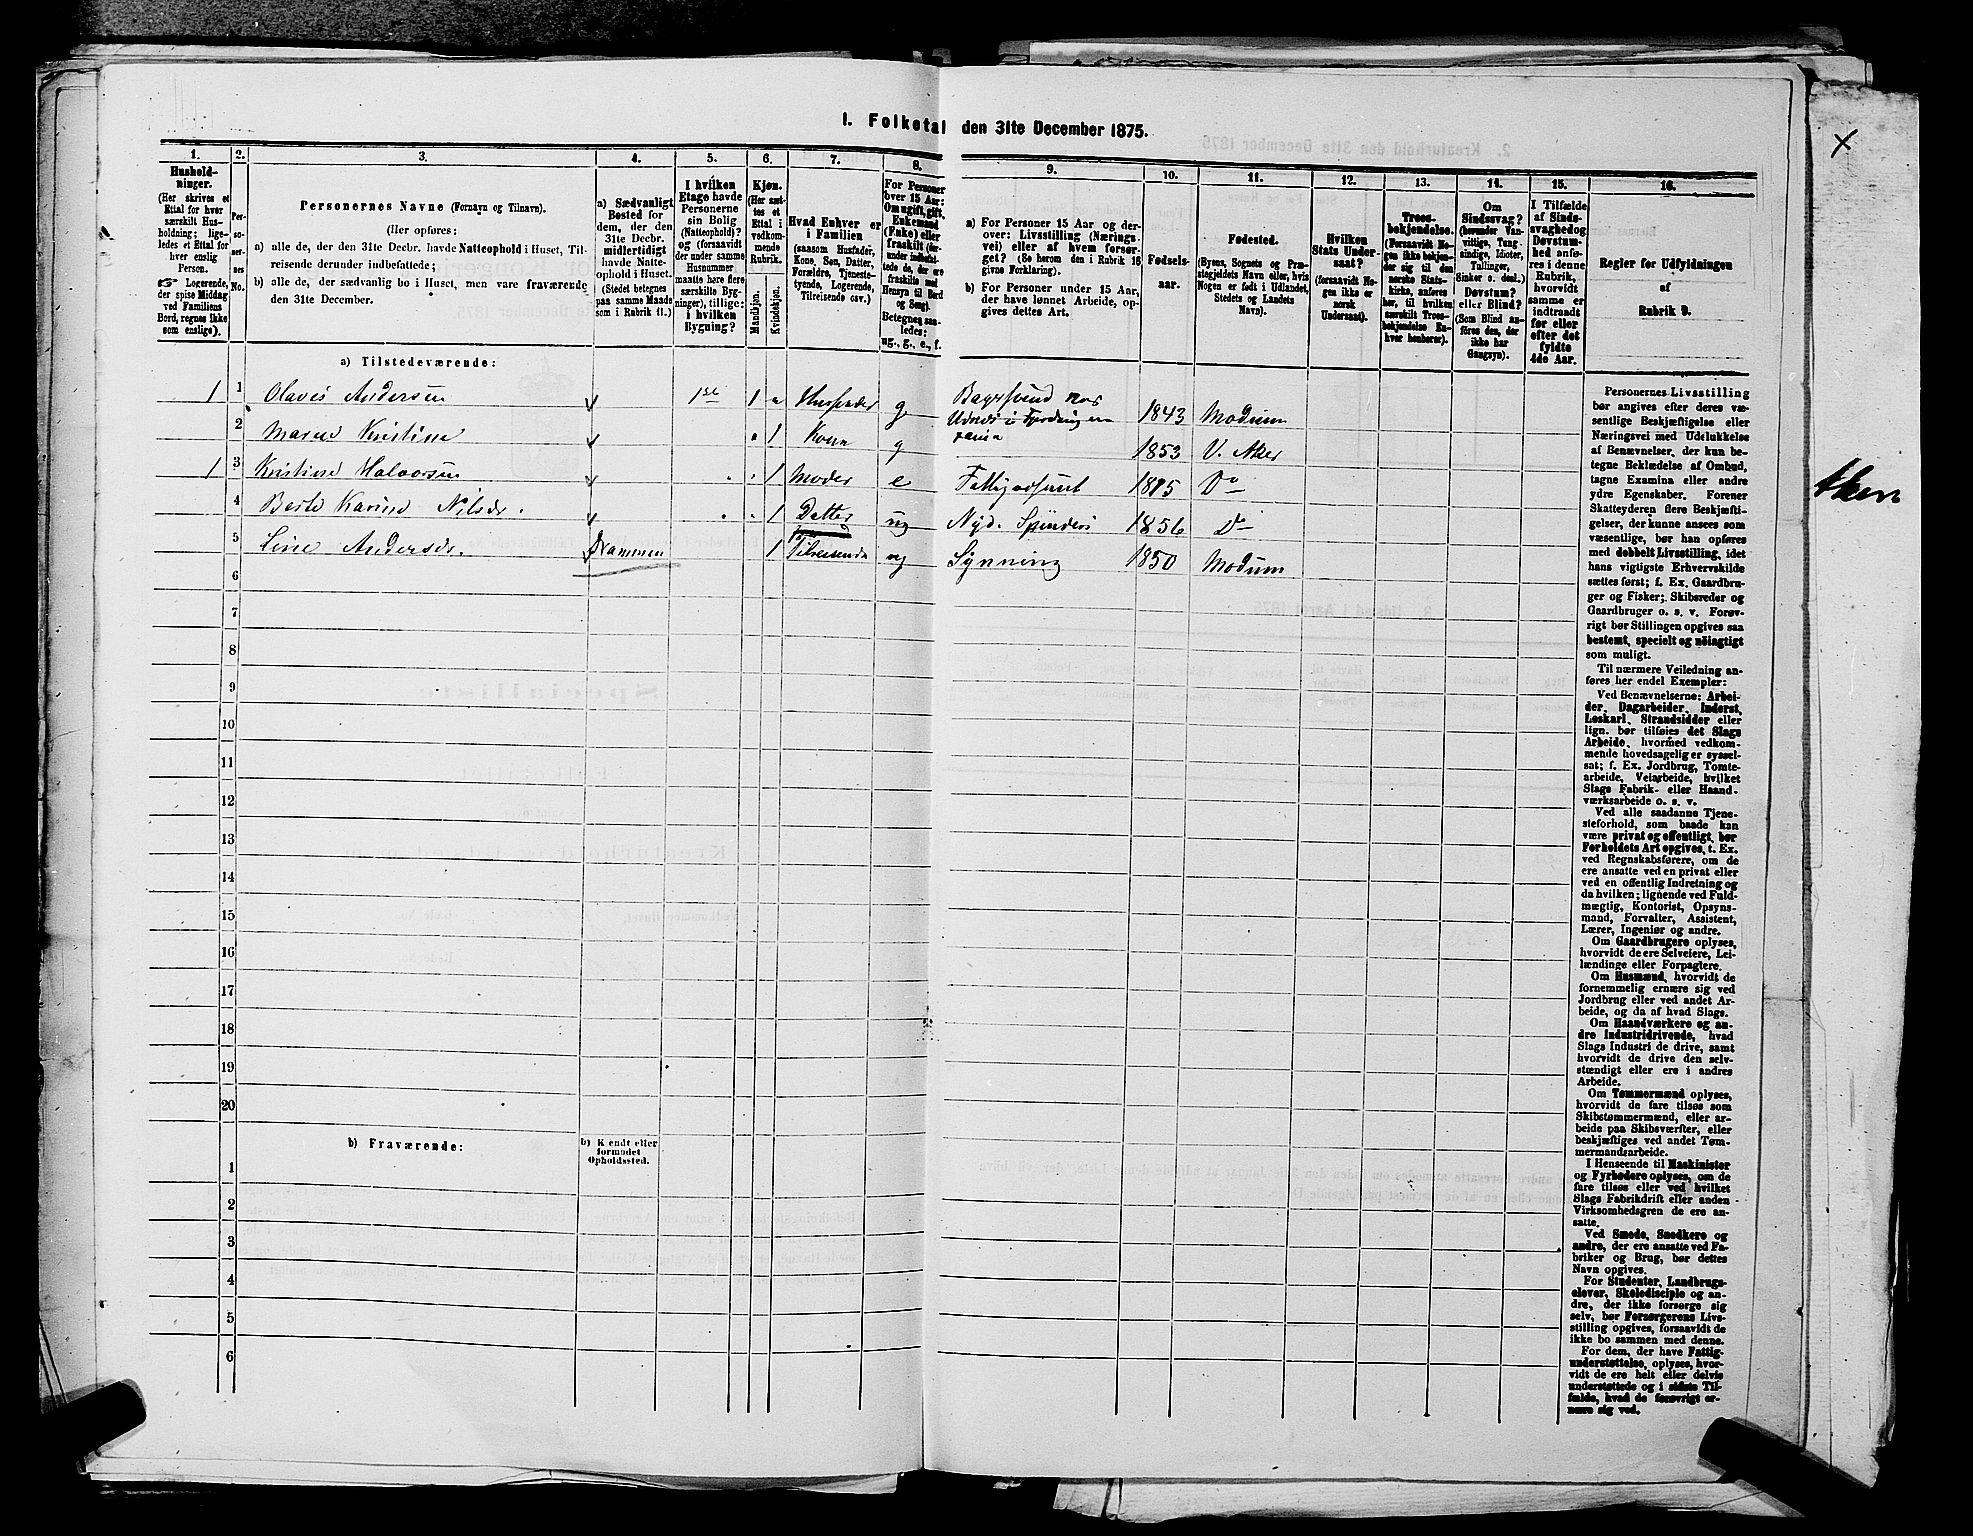 I. Folketal den 31te December 1875.
1.
Hushold-
ninger.
(Her skrives et
Ettal for hver
særskilt Hus-
holdning; lige-
ledes et Ettal for
hver enslig
Person.
Logerende,
der spise Middag
ved Familiens
Bord, regnes ikke
som enslige).
2.
Per-
so-
ner-
nes
No.
3.
Personernes Navne (Fornavn og Tilnavn).
(Her opføres:
a) alle de, der den 31te Decbr. havde Natteophold i Huset, Til-
reisende derunder indbefattede;
b) alle de, der sædvanlig bo i Huset, men vare fraværende
den 31te December.
4.
a) Sædvanligt
Bosted for
dem, der den
31te Decbr.
midlertidigt
havde Natte-
ophold i Huset.
(Stedet betegnes
paa samme Maade
som i Rubrik 11.)
5.
I hvilken
Etage havde
Personerne
sin Bolig
(Natteophold)?
og (forsaavidt
der under samme
Husnummer
maatte høre flere
særskilte Byg-
ninger), tillige:
i hvilken
Bygning?
6.
Kjøn.
(Her sæt-
tes et
Ettal i
vedkom-
mende
Rubrik.
Mandkjøn.
Kvindekjøn.
7.
Hvad Enhver er
i Familien
(saasom Husfader,
Kone, Søn, Datter,
Forældre, Tjeneste-
tyende, Logerende,
Tilreisende osv.)
8.
For Personer
over 15 Aar:
Om ugift, gift,
Enkemand
(Enke) eller
fraskilt
Betegnes saa-
ledes:
ug., g., e., f.
9.
a) For Personer 15 Aar og der-
over: Livsstilling (Nærings-
vei) eller af hvem forsør-
get? (Se herom den i Rubrik 16
givne Forklaring).
b) For Personer under 15 Aar,
der have lønnet Arbeide, op-
gives dettes Art.
10.
Fødsels-
aar.
11.
Fødested.
(Byens, Sognets og Præ-
stegjeldets Navn eller, hvis
Nogen er født i Udlandet,
Stedets og Landets
Navn).
12.
Hvilken
Stats Under-
saat?
(forsaavidt No-
gen ikke er
norsk
Undersaat).
13.
Troes-
bekjendelse.
(Forsaavidt No-
gen ikke bekjen-
der sig til den
norske Stats-
kirke, anføres
her, til hvilken
særskilt Troes-
bekjendelse En-
hver henhører).
14.
Om
Sindssvag?
(herunder Van-
vittige, Tung-
sindige, Idioter,
Tullinger,
Sinker o. desl.)
Døvstum?
eller Blind?
(Som Blind an-
føres den, der
ikke har
Gangsyn).
15.
I Tilfælde
af Sinds-
svaghed og
Døvstum-
hed anfø-
res i denne
Rubrik,
hvorvidt
samme er
indtraadt
før eller
efter det
fyldte
4de Aar.
16.
Regler for Udfyldningen
af
Rubrik 9.
a) Tilstedeværende:
1 1 Olaves Andersen 1ste 1 Husfader g 1843 Modum
2 Maren Kristine 1 Kone g 1853 V. Aker
1 3 Kristine Halvorsen 1 Moder e 1815 Do
4 Berte Karine Nilsdr. 1 Datter ug 1856 Do
5 Line Andersdr. Drammen 1 Tilreisende ug Syning 1850 Modum
6
7
8
9
10
11
12
13
14
15
16
17
18
19
20
b) Fraværende:
b) Kjendt eller
formodet
Opholdssted.
1
2
3
4
5
6
Personernes Livsstilling
bør angives efter deres væ-
sentlige Beskjæftigelse eller
Næringsvei med Udelukkelse
af Benævnelser, der kun be-
tegne Beklædelse af Ombud,
tagne Examina eller andre
ydre Egenskaber. Forener
Skatteyderen flere Beskjæfti-
gelser, der kunne ansees som
væsentlige, bør han opføres
med dobbelt Livsstilling, idet
hans vigtigste Erhvervskilde
sættes først; f. Ex. Gaardbru-
ger og Fisker; Skibsreder og
Gaardbruger o. s. v. Forøv-
rigt bør Stillingen opgives saa
bestemt, specielt og nøiagtigt
som muligt.
Til nærmere Veiledning an-
føres her endel Exempler:
Ved Benævnelserne: Arbei-
der, Dagarbeider, Inderst,
Løskarl, Strandsidder eller
lign. bør tilføies det Slags
Arbeide, hvormed vedkom-
mende hovedsagelig er syssel-
sat; f. Ex. Jordbrug, Tomte-
arbeide, Veiarbeide, hvilket
Slags Fabrik- eller Haand-
værksarbeide o. s. v.
Ved alle saadanne Tjene-
steforhold, som baade kan
være privat og offentligt, bør
Forholdets Art opgives, t. Ex.
ved Regnskabsførere, om de
ere ansatte ved en privat eller
ved en offentlig Indretning og
da hvilken; lignende ved Fuld-
mægtig, Kontorist, Opsyns-
mand, Forvalter, Assistent,
Lærer, Ingeniør og andre.
Om Gaardbrugere oplyses,
hvorvidt de ere Selveiere, Lei-
lændinge eller Forpagtere.
Om Husmænd, hvorvidt de
fornemmelig ernære sig ved
Jordbrug eller ved andet Ar-
beide, og da af hvad Slags.
Om Haandværkere og an-
dre Industridrivende, hvad
Slags Industri de drive, samt
hvorvidt de drive den selv-
stændigt eller ere i andres
Arbeide.
Om Tømmermænd oplyses,
hvorvidt de fare tilsøs som
Skibstømmermænd, eller ar-
beide paa Skibsværfter, eller
beskjæftiges ved andet Tøm-
mermandsarbeide.
I Henseende til Maskinister
og Fyrbødere oplyses, om de
fare tilsøs eller ved hvilket
Slags Fabrikdrift eller anden
Virksomhedsgren de ere an-
satte.
Ved Smede, Snedkere og
andre, der ere ansatte ved Fa-
briker og Brug, bør dettes
Navn opgives.
For Studenter, Landbrugs-
elever, Skoledisciple og an-
dre, der ikke forsørge sig
selv, bør Forsørgerens Livs-
stilling opgives, forsaavidt de
ikke bo sammen med denne.
For dem, der have Fattig-
understøttelse, oplyses, hvor-
vidt de ere helt eller delvis
understøttede og i sidste Til-
fælde, hvad de forøvrigt er-
nære sig ved.